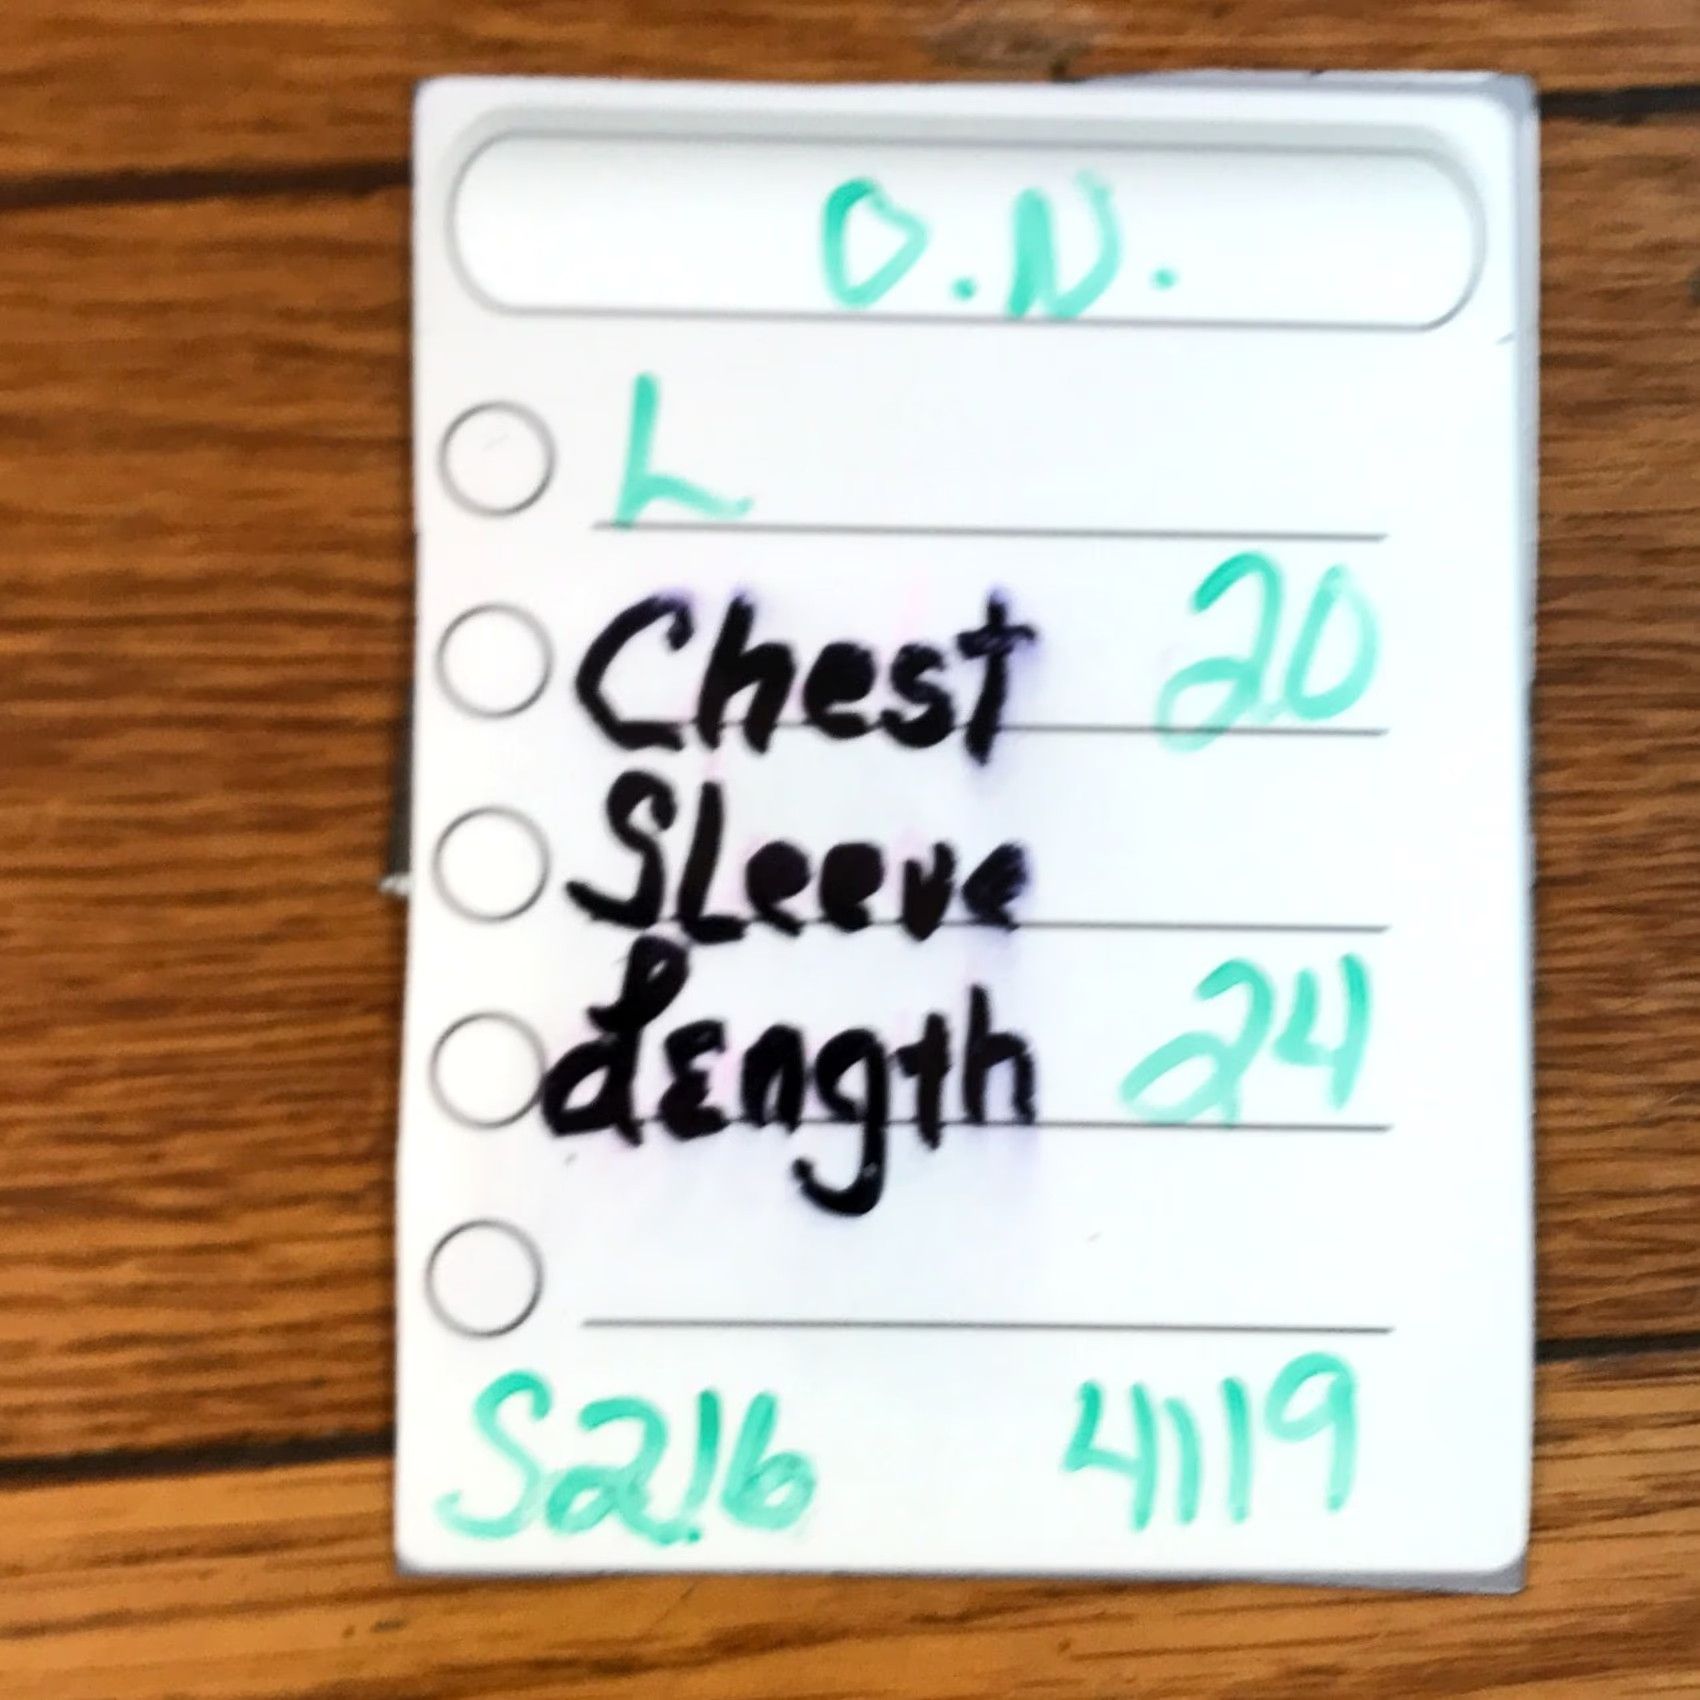 O.N.
L
Chest 20
SLeeve
Length 24
S216 4119